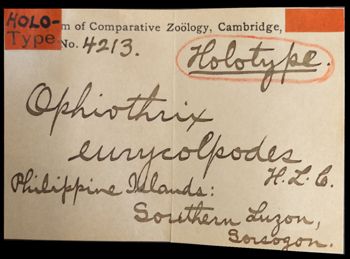 HOLO-
Type
m of Comparative Zoölogy, Cambridge,
No. 4213.
Holotype.
Ophiothrix
eurycolpodes
H. L. C.
Philippine Islands:
Southern Luzon,
Sorsogon.